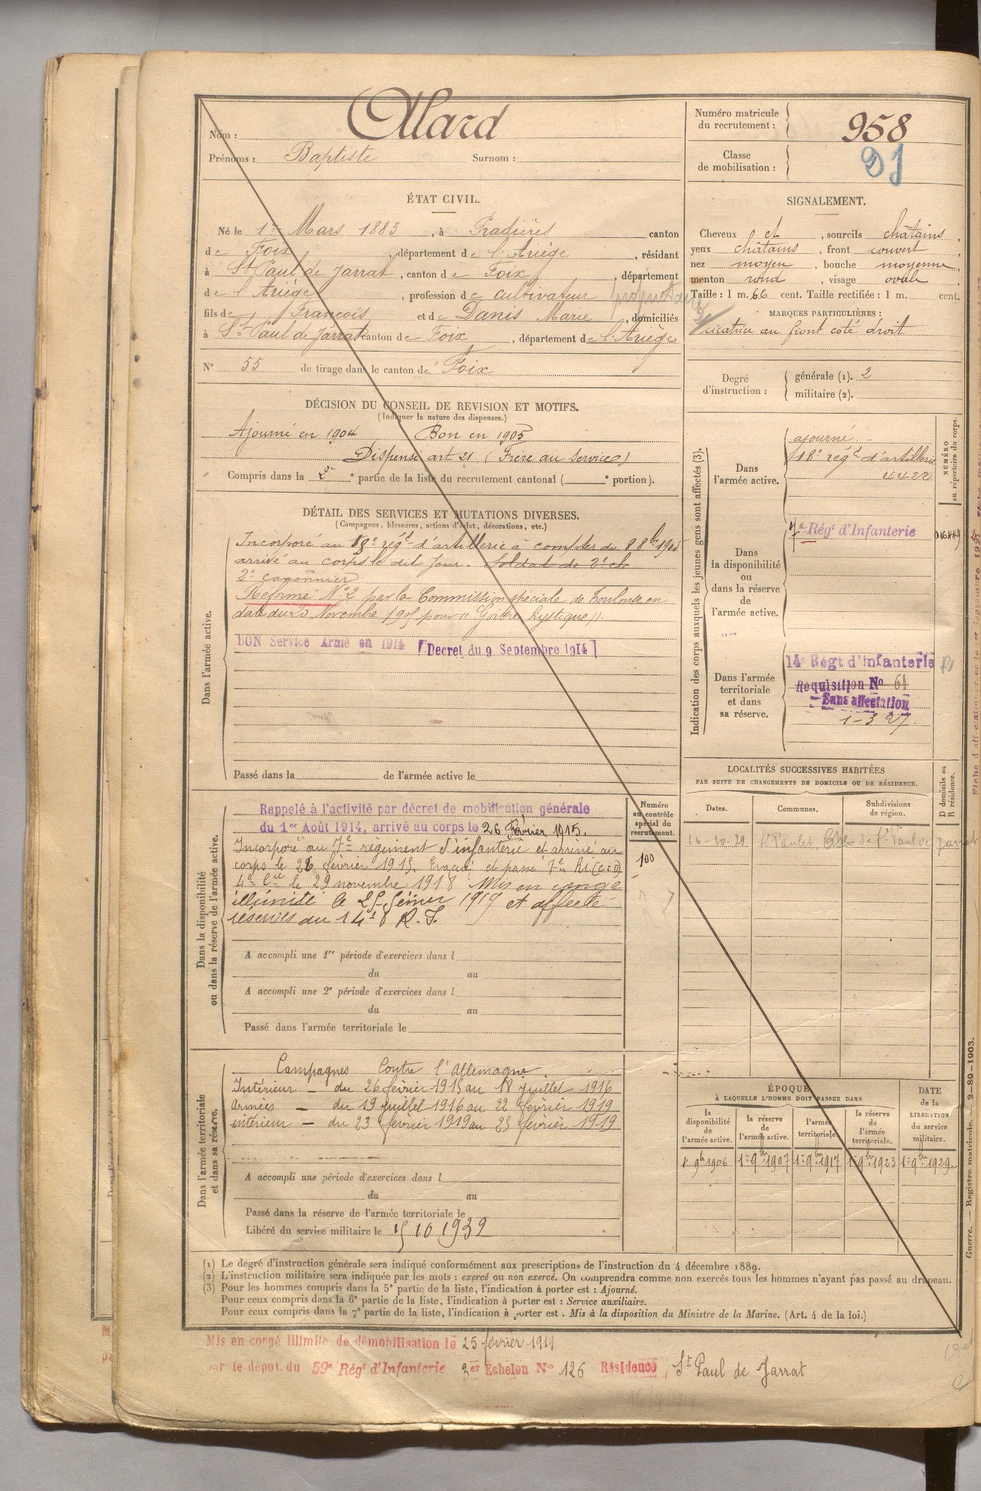 Nom : Allard
Prénoms : Baptiste Surnom :
Numéro matricule
du recrutement : 958
Classe
de mobilisation :
ÉTAT CIVIL.
Né le 1er Mars 1883, à Pradières canton
de Foix, département de l'Ariège, résidant
à St Paul de Jarrat, canton de Foix, département
de l'Ariège, profession de cultivateur
fils de François et de Danis Marie, domiciliés
à St Paul de Jarrat canton de Foix, département de l'Ariège
No 55 de tirage dans le canton de Foix
SIGNALEMENT.
Cheveux et, sourcils châtains,
yeux châtains, front couvert
nez moyen, bouche moyenne
menton rond, visage ovale
Taille : 1 m. 66 cent. Taille rectifiée : 1 m. cent.
MARQUES PARTICULIÈRES :
Cicatrice au front coté droit
Degré
d'instruction :
générale (1). 2
militaire (2).
DÉCISION DU CONSEIL DE REVISION ET MOTIFS.
(Indiquer la nature des dispenses.)
Ajourné en 1904 Bon en 1905
Dispensé art 21 (Frère au service)
Compris dans la 2e partie de la liste du recrutement cantonal ( e portion).
DÉTAIL DES SERVICES ET MUTATIONS DIVERSES.
(Campagnes, blessures, actions d'éclat, décorations, etc.)
Dans l'armée active.
Incorporé au 18e régt d'artillerie à compter du 8 8bre 1905
arrivé au corps le dit jour. Soldat de 2e cl
2e canonnier
Réformé No 2 par la Commission spéciale de Toulouse en
date du 3 Novembre 1905 pour "Goitre kystique".
BON Service Armé en 1914 [Decret du 9 Septembre 1914]
Passé dans la de l'armée active le
Indication des corps auxquels les jeunes gens sont affectés (3).
NUMÉRO
au répertoire du corps.
Dans
l'armée active.
ajourné
18e régt d'artillerie
4422
Dans
la disponibilité
ou
dans la réserve
de
l'armée active.
7e Régt d'Infanterie
Dans l'armée
territoriale
et dans
sa réserve.
14e Régt d'infanterie
Requisition No 61
Sans affectation
1-3-27.
Dans la disponibilité
ou dans la réserve de l'armée active.
Rappelé à l'activité par décret de mobilisation générale
du 1er Août 1914, arrivé au corps le 26 Février 1915.
Incorporé au 7e régiment d'infanterie et arrivé au
corps le 26 février 1915. Evacué et passé 7e RI
4e Cie le 29 novembre 1918 Mis en congé
illimité le 25 février 1919 et affecté
réserves du 14e R.I.
Numéro
au contrôle
spécial du
recrutement.
100
A accompli une 1re période d'exercices dans l
du au
A accompli une 2e période d'exercices dans l
du au
Passé dans l'armée territoriale le
LOCALITÉS SUCCESSIVES HABITÉES
PAR SUITE DE CHANGEMENTS DE DOMICILE OU DE RÉSIDENCE.
Dates. Communes. Subdivisions
de région.
D domicile ou
R résidence.
16-10-29
Dans l'armée territoriale
et dans sa réserve.
Campagnes Contre l'Allemagne.
Intérieur – du 26 février 1915 au 18 juillet 1916
Armées – du 19 juillet 1916 au 22 février 1919
intérieur – du 23 février 1919 au 25 février 1919
A accompli une période d'exercices dans l
du au
Passé dans la réserve de l'armée territoriale le
Libéré du service militaire le 15 10 1932
ÉPOQUE
À LAQUELLE L'HOMME DOIT PASSER DANS
la
disponibilité
de
l'armée active.
la réserve
de
l'armée active.
l'armée
territoriale.
la réserve
de
l'armée
territoriale.
DATE
de la
LIBÉRATION
du service
militaire.
1er 9bre 1906 1er 9bre 1907 1er 9bre 1917 1er 9bre 1923 1er 9bre 1929
(1) Le degré d'instruction générale sera indiqué conformément aux prescriptions de l'instruction du 4 décembre 1889.
(2) L'instruction militaire sera indiquée par les mots : exercé ou non exercé. On comprendra comme non exercés tous les hommes n'ayant pas passé au drapeau.
(3) Pour les hommes compris dans la 5e partie de la liste, l'indication à porter est : Ajourné.
Pour ceux compris dans la 6e partie de la liste, l'indication à porter est : Service auxiliaire.
Pour ceux compris dans la 7e partie de la liste, l'indication à porter est : Mis à la disposition du Ministre de la Marine. (Art. 4 de la loi.)
Guerre. — Registre matricule. — 2-89-1903.
Mis en congé illimité de démobilisation le 25 février 1919
par le dépôt du 59e Régt d'Infanterie 2er Echelon No 126 Résidence St Paul de Jarrat